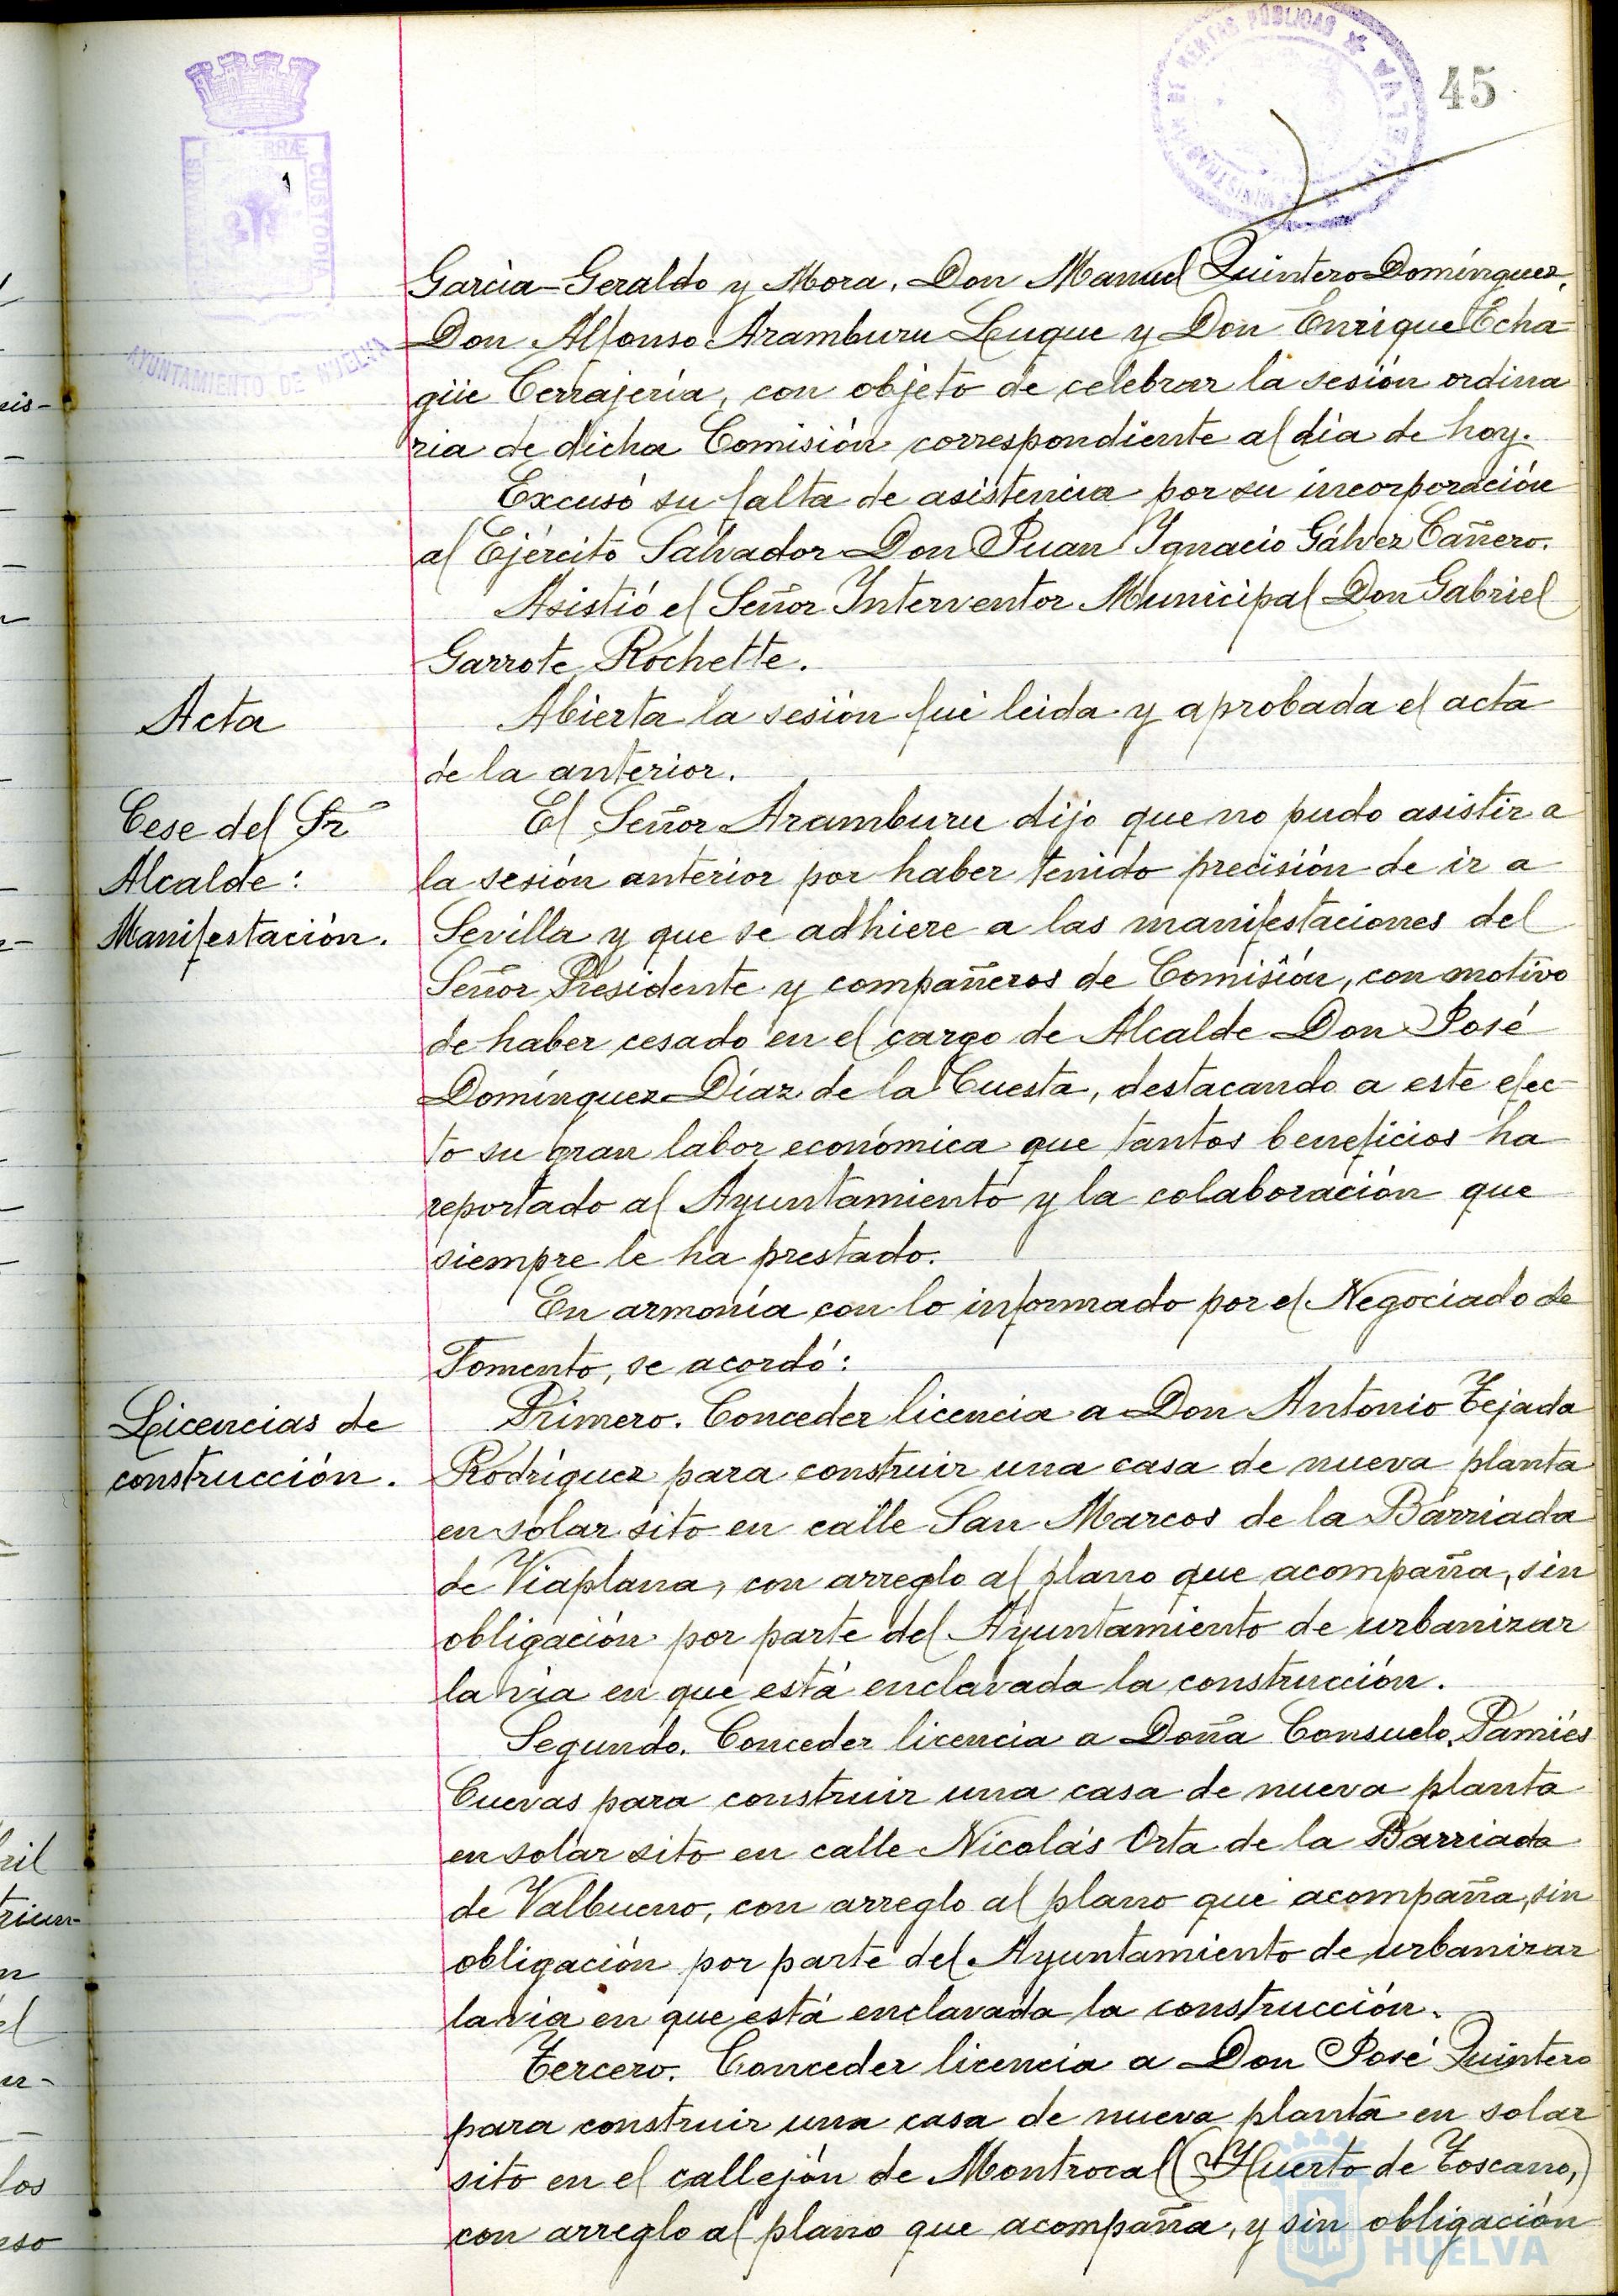 45
AYUNTAMIENTO DE HUELVA
García-Geraldo y Mora, Don Manuel Quintero Domínguez,
Don Alfonso Aramburu Luque y Don Enrique Echa
güe Cerrajería, con objeto de celebrar la sesión ordina
ria de dicha Comisión correspondiente al día de hoy.
Excusó su falta de asistencia por su incorporación
al Ejército Salvador Don Juan Ignacio Gálvez Cañero.
Asistió el Señor Interventor Municipal Don Gabriel
Garrote Rochette.
Acta
Abierta la sesión fué leida y aprobada el acta
de la anterior.
Cese del Sr
Alcalde:
Manifestación.
El Señor Aramburu dijo que no pudo asistir a
la sesión anterior por haber tenido precisión de ir a
Sevilla y que se adhiere a las manifestaciones del
Señor Presidente y compañeros de Comisión, con motivo
de haber cesado en el cargo de Alcalde Don José
Domínguez Díaz de la Cuesta, destacando a este efec-
to su gran labor económica que tantos beneficios ha
reportado al Ayuntamiento y la colaboración que
siempre le ha prestado.
En armonía con lo informado por el Negociado de
Fomento, se acordó:
Licencias de
construcción.
Primero. Conceder licencia a Don Antonio Tejada
Rodríguez para construir una casa de nueva planta
en solar sito en calle San Marcos de la Barriada
de Viaplana, con arreglo al plano que acompaña, sin
obligación por parte del Ayuntamiento de urbanizar
la vía en que está enclavada la construcción.
Segundo. Conceder licencia a Doña Consuelo Pamiés
Cuevas para construir una casa de nueva planta
en solar sito en calle Nicolás Orta de la Barriada
de Valbueno, con arreglo al plano que acompaña, sin
obligación por parte del Ayuntamiento de urbanizar
la vía en que está enclavada la construcción.
Tercero. Conceder licencia a Don José Quintero
para construir una casa de nueva planta en solar
sito en el callejón de Montrocal (Huerto de Toscano,)
con arreglo al plano que acompaña, y sin obligación
HUELVA